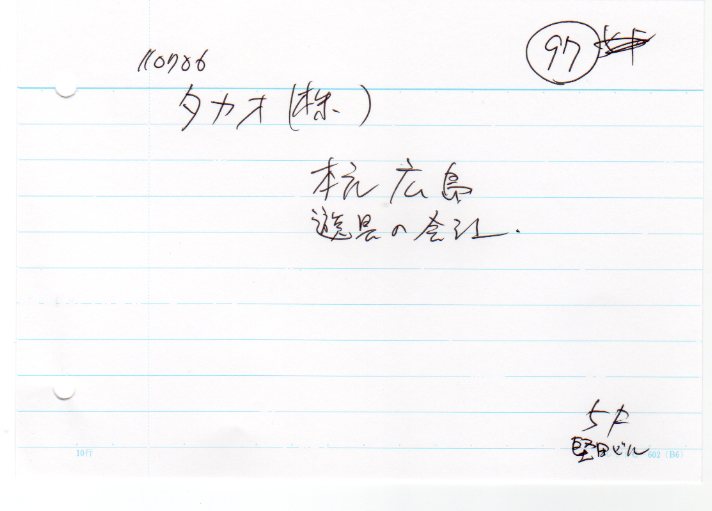 110706
97
タカオ(株)
本社 広島
遊具の会社.
5F
堅田ビル
10行
602 (B6)